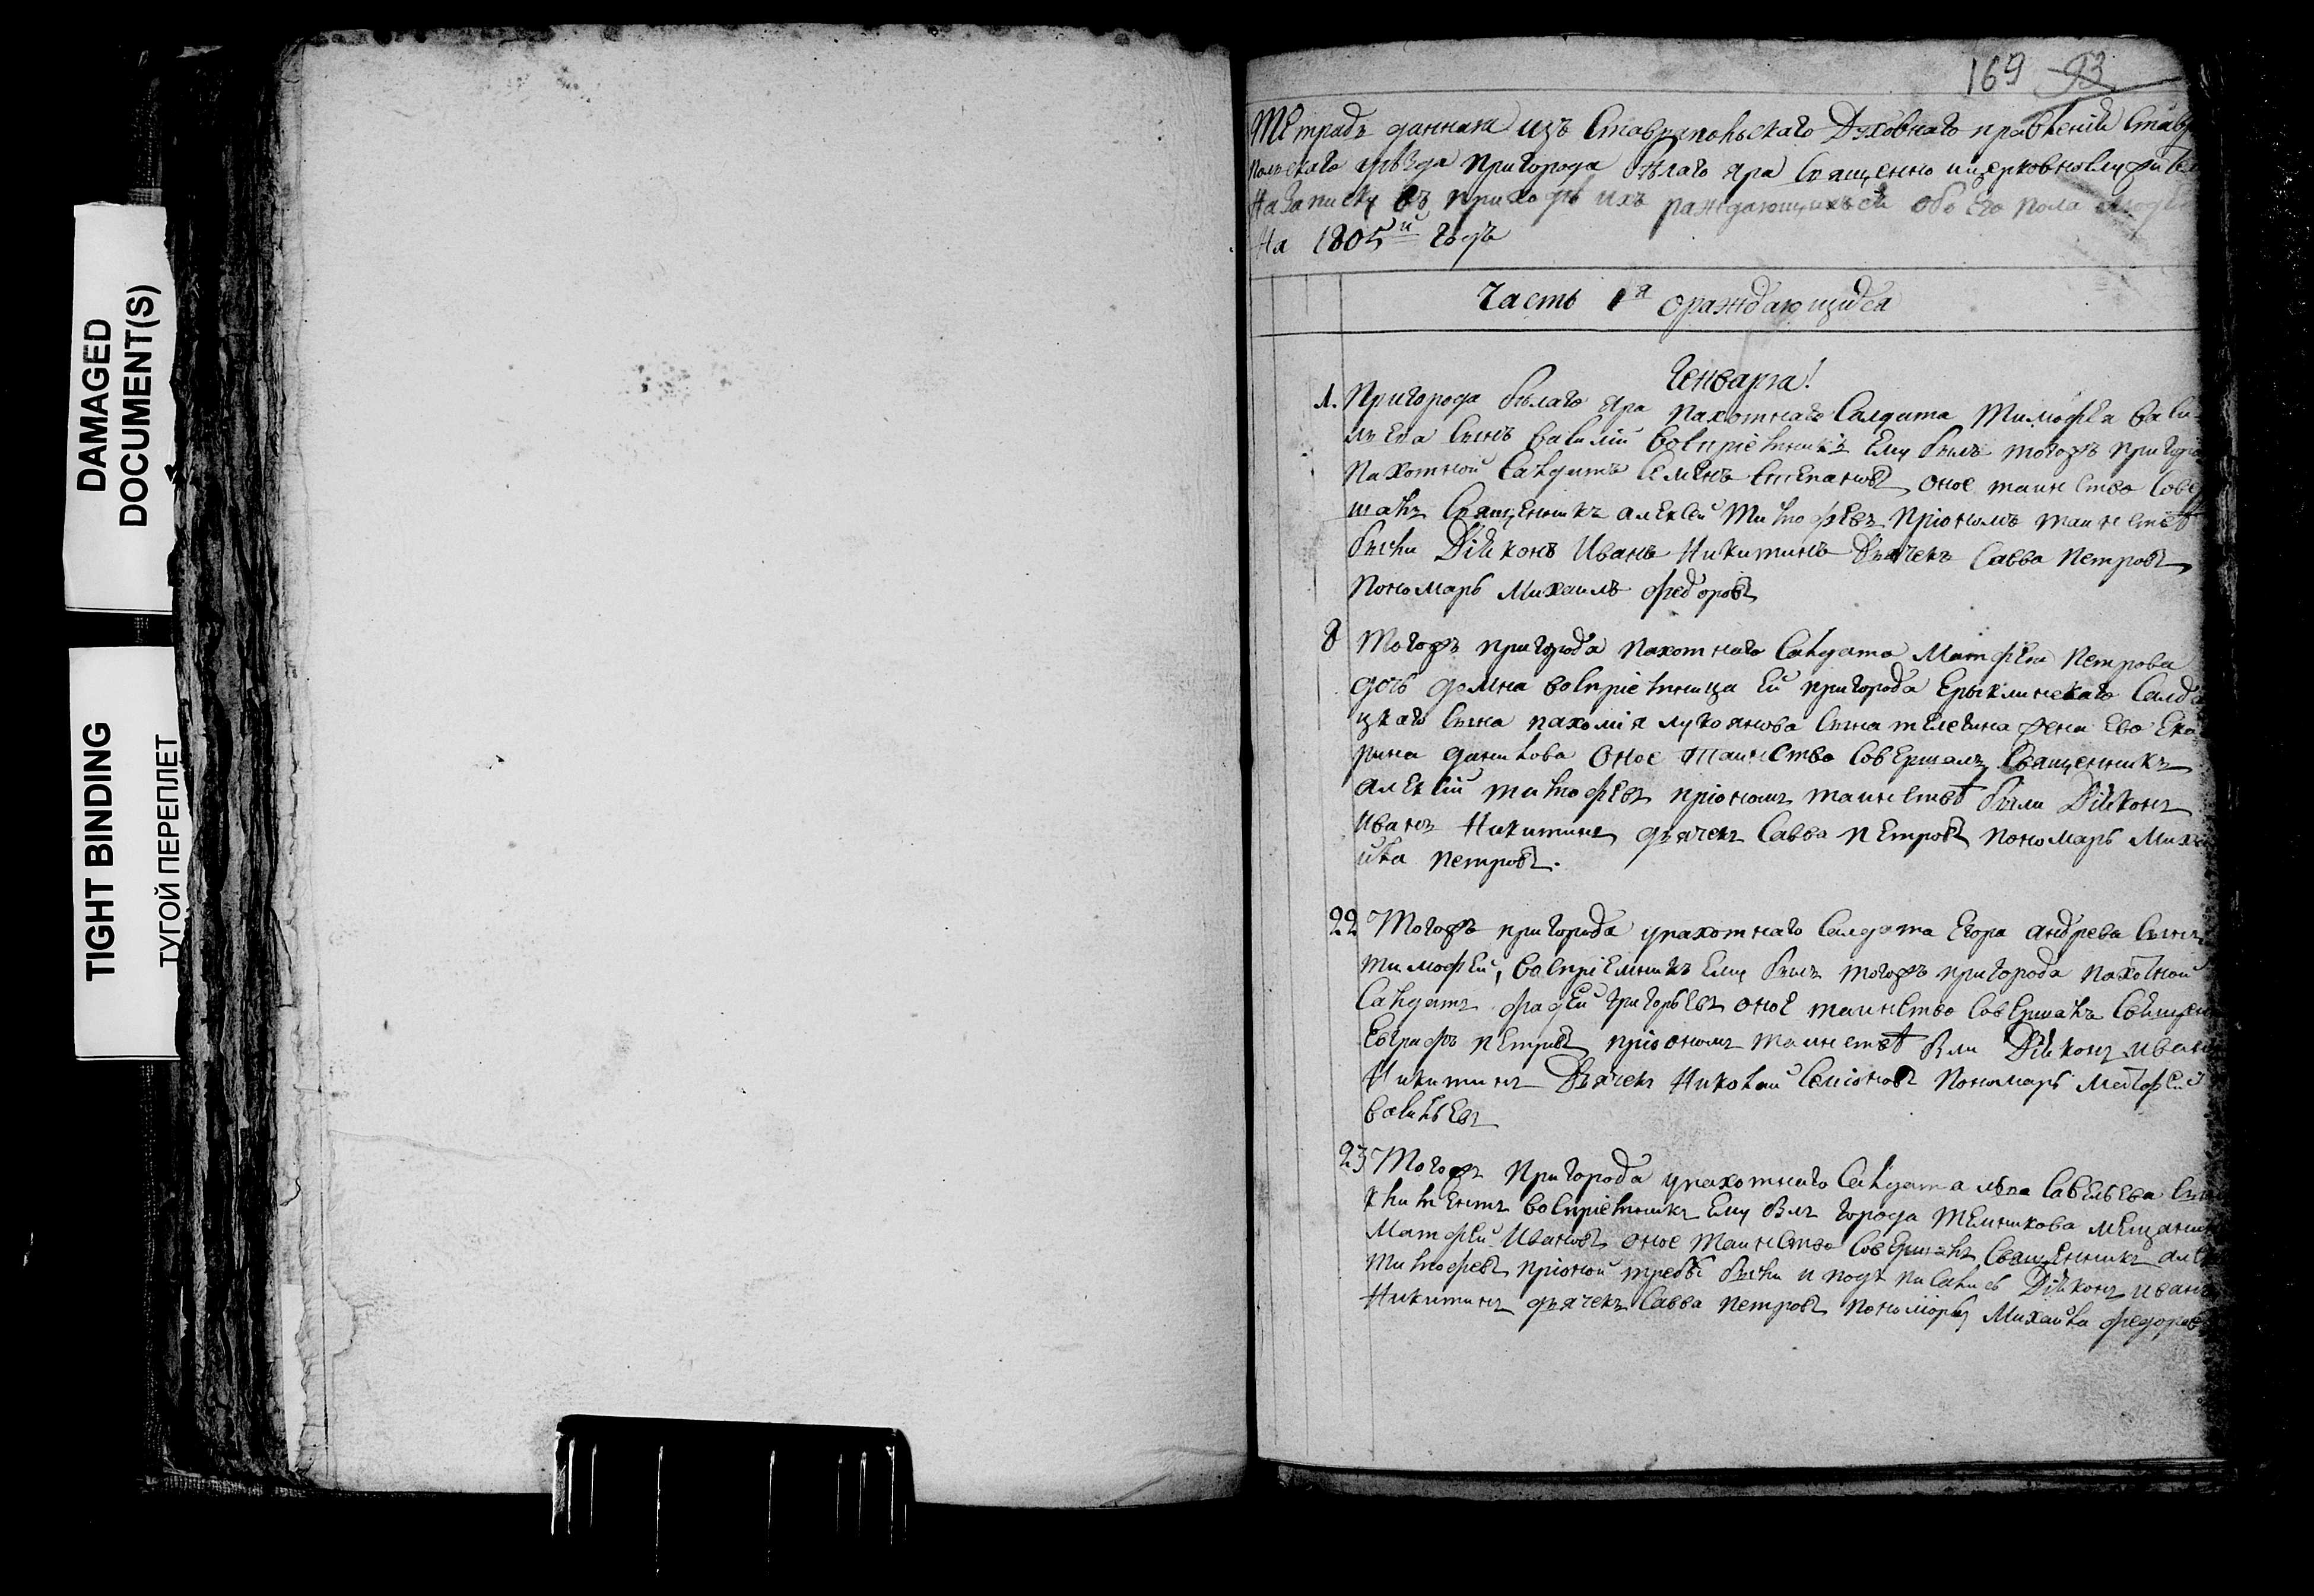 DAMAGED
DOCUMENT(S)
TIGHT BINDING
ТУГОЙ ПЕРЕПЛЕТ
169 93
Тетрадь данная изъ Ставропольскаго Духовнаго правленія Ставро
польскаго уѣзда пригорода бѣлаго яра Священно ицерковнослужите
На записку въ приходѣ ихъ раждающихъся обоего пола людей
На 1805й годъ
Часть 1я ораждающихся
Генваря!
1. Пригорода бѣлаго яра пахотнаго Салдата Тимофѣа васи
льева сынъ василій воспріемникъ ему былъ тогожъ пригоро
пахотной Салдатъ Семенъ Степановъ, оное таинство Сове
шалъ Священникъ алексѣй Тимофеевъ, пріономъ таинствѣ
были Діаконъ Иванъ Никитинъ Дьячекъ Савва Петровъ
Пономарь Михаилъ федоровъ
8 Тогожъ пригорода пахотнаго Салдата Матфея Петрова
дочь домна воспріемница ей пригорода Ерыклинскаго Салда
цкаго сына пахомія лукоянова сына телегина жена ево Ека
рина данилова Оное таинство Совершалъ Священникъ
алексѣй тимофеевъ пріономъ таинствѣ были Діаконъ
Иванъ Никитинъ, дьячекъ Савва петровъ пономарь Миха
ила петровъ.
22 Тогожъ пригорода упахотнаго Салдата Егора андрева сынъ
тимофей, воспріемникъ ему былъ тогожъ пригорода пахотной
Салдатъ фадей григорьевъ оное таинство совершалъ Священ
Евграфъ петровъ пріономъ таинствѣ бли Діаконъ иванъ
Никитинъ Дьячекъ Николай Семіоновъ Пономарь Матфей
васильевъ
23 Тогожъ Пригорода упахотнаго Салдата льва Савельева сы
климентъ воспріемникъ ему блъ города Темникова мещанин
Матфей Ивановъ оное таинство Совершалъ Священникъ але
тимофеевъ, пріоной требѣ были и подъписались Діаконъ иванъ
Никитинъ дьячекъ Савва петровъ пономарь Михаила федоровъ